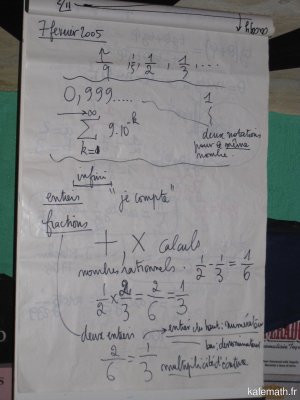 7 février 2005
r/q , 1/3 ; 1/2 , 1/3 , ...
0,999..... 1
→∞
∑ 9.10^-k
k=1
deux notations
pour le même
nombre
infini
entiers "je compte"
fractions
+, × calculs
nombres rationnels. 1/2 - 1/3 = 1/6
1/2 × 2/3 = 2/6 = 1/3
deux entiers → entier du haut : numérateur
bas : dénominateur
2/6 = 1/3 multiplicité d'écriture
kafemath.fr